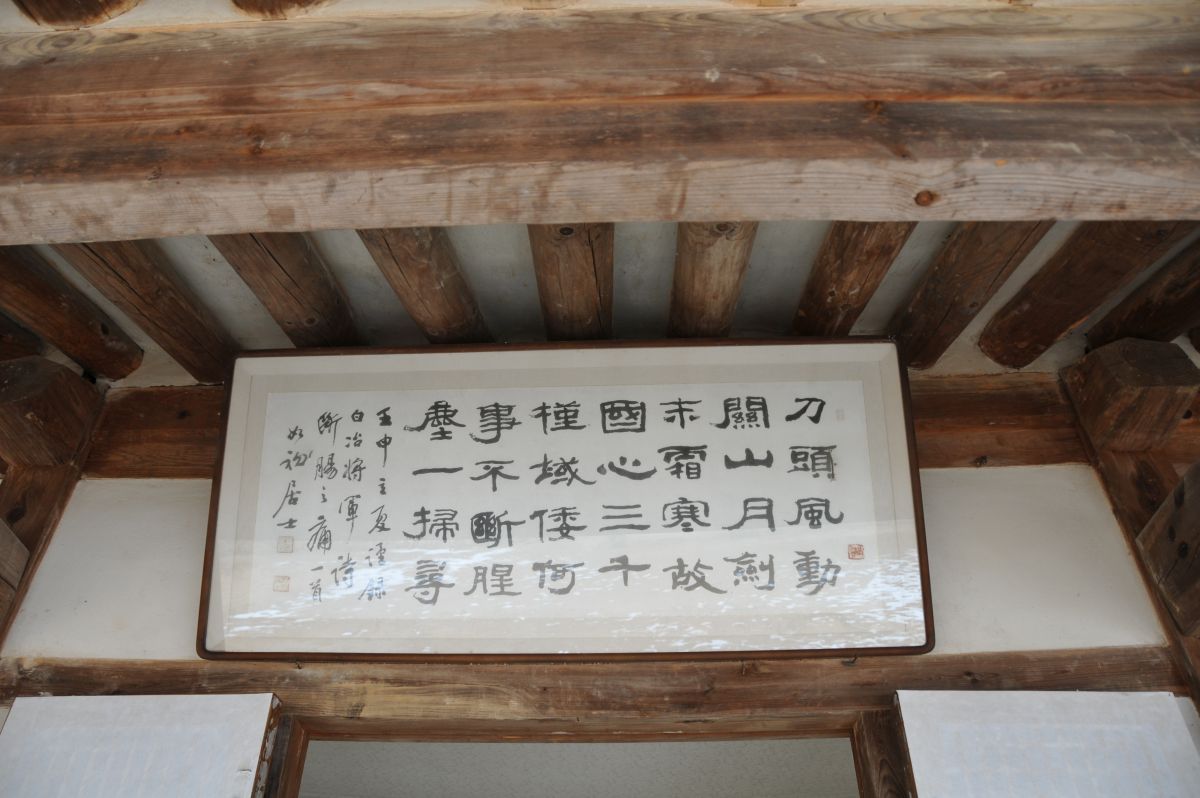 刀頭風動
關山月劍
末霜寒故
國心三千
槿域倭何
事不斷腥
塵一掃尋
壬申立夏謹錄
白冶將軍詩
斷腸之痛一首
居士